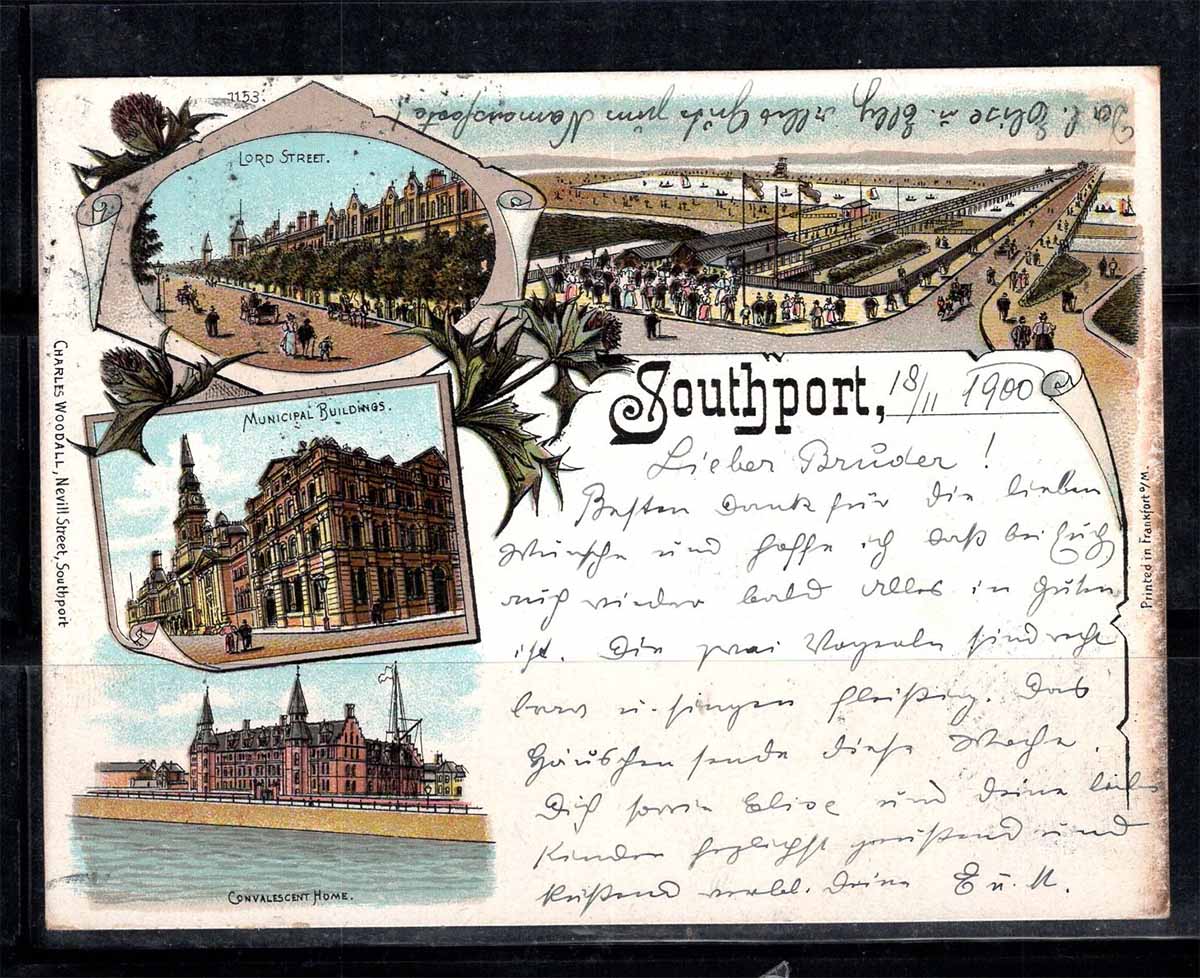 1153.
Der l. Elise u. Elly alles Gute zum Namensfeste!
LORD STREET.
Southport, 18/11 1900
MUNICIPAL BUILDINGS.
Lieber Bruder!
Besten Dank für die lieben
Wünsche und hoffe ich daß bei Euch
auch wieder bald Alles in Guten
ist. Die zwei Vogerln sind recht
brav u. singen fleißig. Das
Häuschen sende diese Woche.
Dich sowie Elise und Deine lieben
Kinder herzlichst grüßend und
küßend verbl. Deine E u. M.
CONVALESCENT HOME.
CHARLES WOODALL, Nevill Street, Southport
Printed in Frankfort o/M.